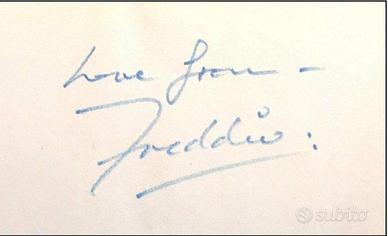 Love from –
Freddie:
subito